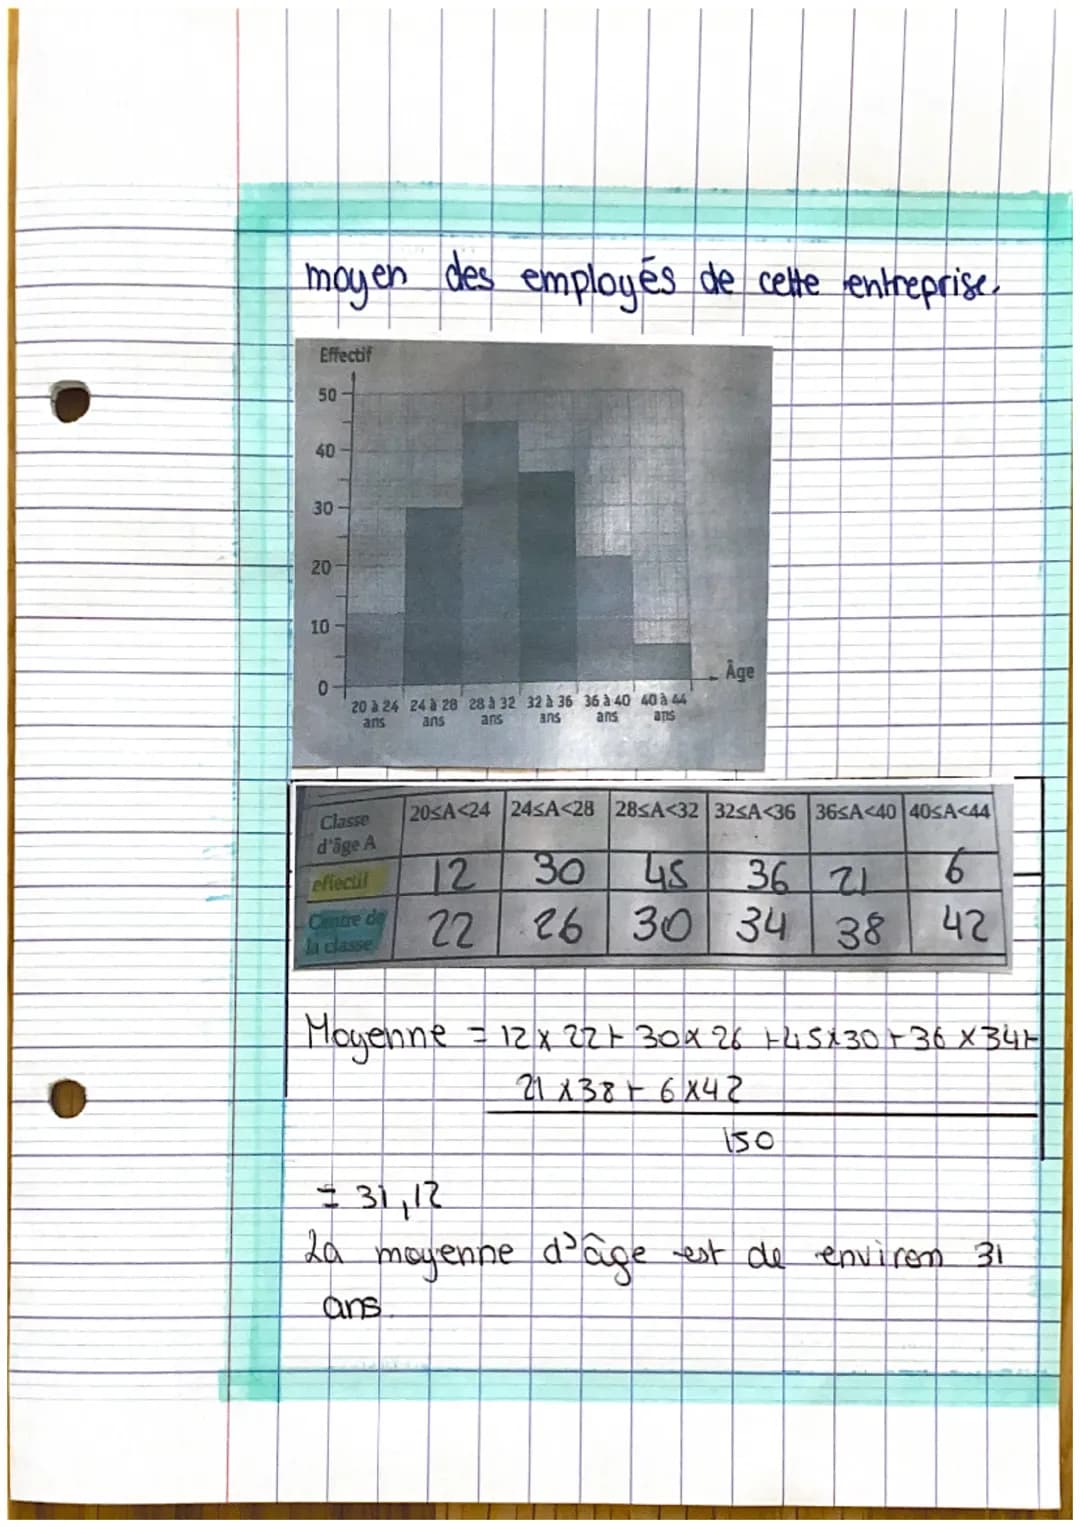 moyen des employés de cette entreprise.
Effectif
50
40
30
20
10
0
Âge
20 à 24 ans 24 à 28 ans 28 à 32 ans 32 à 36 ans 36 à 40 ans 40 à 44 ans
Classe d'âge A 20≤A<24 24≤A<28 28≤A<32 32≤A<36 36≤A<40 40≤A<44
effectif 12 30 45 36 21 6
Centre de la classe 22 26 30 34 38 42
Moyenne = 12 x 22 + 30 x 26 + 45 x 30 + 36 x 34 +
21 x 38 + 6 x 42
150
= 31,12
La moyenne d'âge est de environ 31
ans.